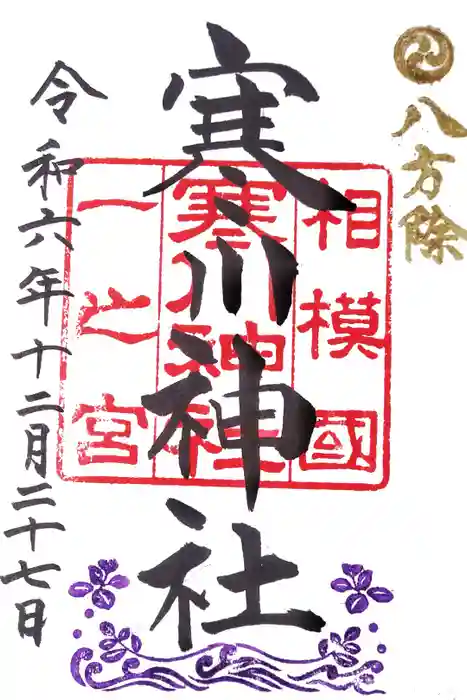 八方除
相模國
寒川神社
一之宮
寒川神社
令和六年十二月二十七日